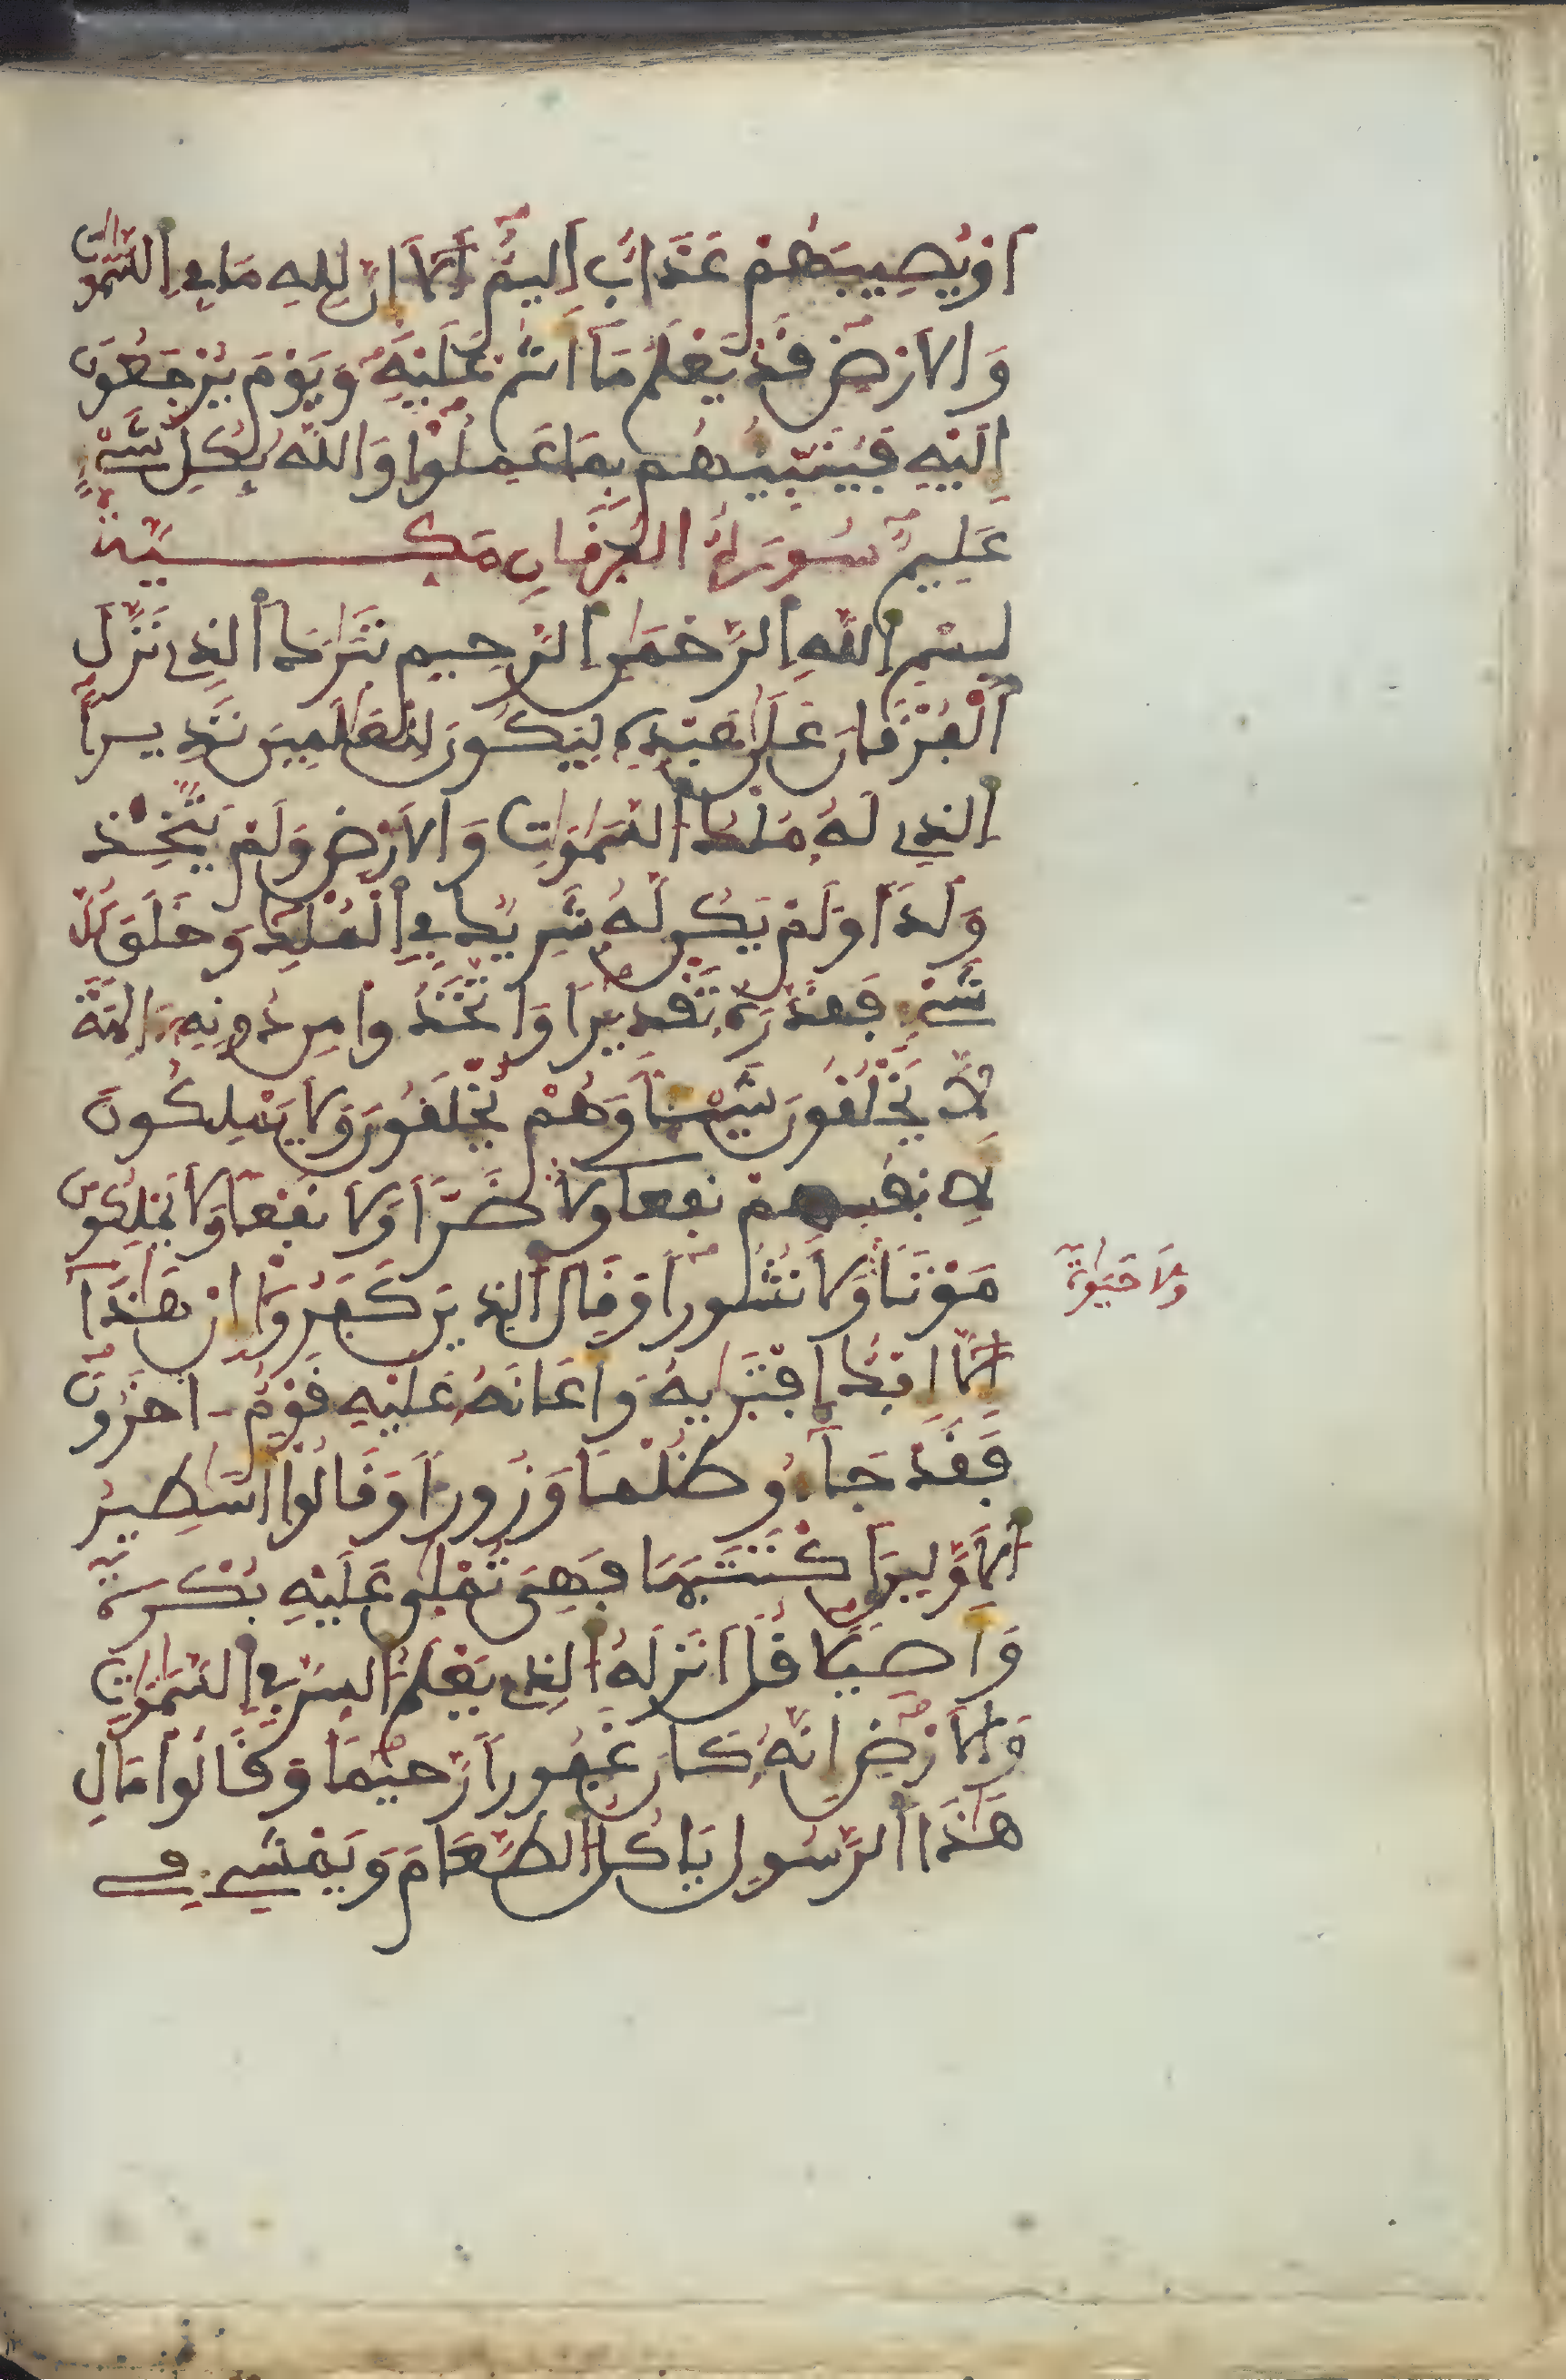 اَوْ يُصِيبَهُمْ عَذَابٌ اَلِيمٌ اَلَا إِنَّ لِلهِ مَا فِي اِلسَّمَٰوَٰتِ
وَالَارْضِ قَدْ يَعْلَمُ مَا أَنتُمْ عَلَيْهِ وَيَوْمَ يُرْجَعُونَ
إِلَيْهِ فَيُنَبِّئُهُم بِمَا عَمِلُوا وَاللَّهُ بِكُلِّ شَيْءٍ
عَلِيمٌ سُورَةُ الفُرْقَانِ مَكِّيَّةٌ
بِسْمِ اِللَّهِ اِلرَّحْمَٰنِ اِلرَّحِيمِ تَبَٰرَكَ اَلذِي نَزَّلَ
اَلْفُرْقَانَ عَلَىٰ عَبْدِهِ لِيَكُونَ لِلْعَٰلَمِينَ نَذِيراً
اَلذِي لَهُ مُلْكُ اُلسَّمَٰوَٰتِ وَالَارْضِ وَلَمْ يَتَّخِذْ
وَلَداً وَلَمْ يَكُن لَّهُ شَرِيكٌ فِي اِلْمُلْكِ وَخَلَقَ كُلَّ
شَيْءٍ فَقَدَّرَهُ تَقْدِيراً وَاتَّخَذُوا مِن دُونِهِ ءَالِهَةً
لَّا يَخْلُقُونَ شَيْئاً وَهُمْ يُخْلَقُونَ وَلَا يَمْلِكُونَ
لِأَنفُسِهِمْ نفعا ولا ضَرّاً وَلَا نَفْعاً وَلَا يَمْلِكُونَ
مَوْتاً وَلَا نُشُوراً وَقَالَ اَلذِينَ كَفَرُوا إِنْ هَٰذَا
وَلَا حَيَوٰةً
إِلَّا إِفْكٌ اِفْتَرَىٰهُ وَأَعَانَهُ عَلَيْهِ قَوْمٌ ـاخَرُونَ
فَقَدْ جَآءُو ظُلْماً وَزُوراً وَقَالُوا أَسَٰطِيرُ
اُلَاوَّلِينَ اَكْتَتَبَهَا فَهِيَ تُمْلَىٰ عَلَيْهِ بُكْرَةً
وَأَصِيلاً قُلْ أَنزَلَهُ اُلذِي يَعْلَمُ اُلسِّرَّ فِي اِلسَّمَٰوَٰتِ
وَالَارْضِ إِنَّهُ كَانَ غَفُوراً رَّحِيماً وَقَالُوا مَالِ
هَٰذَا اَلرَّسُولِ يَاكُلُ اُلطَّعَامَ وَيَمْشِي فِي